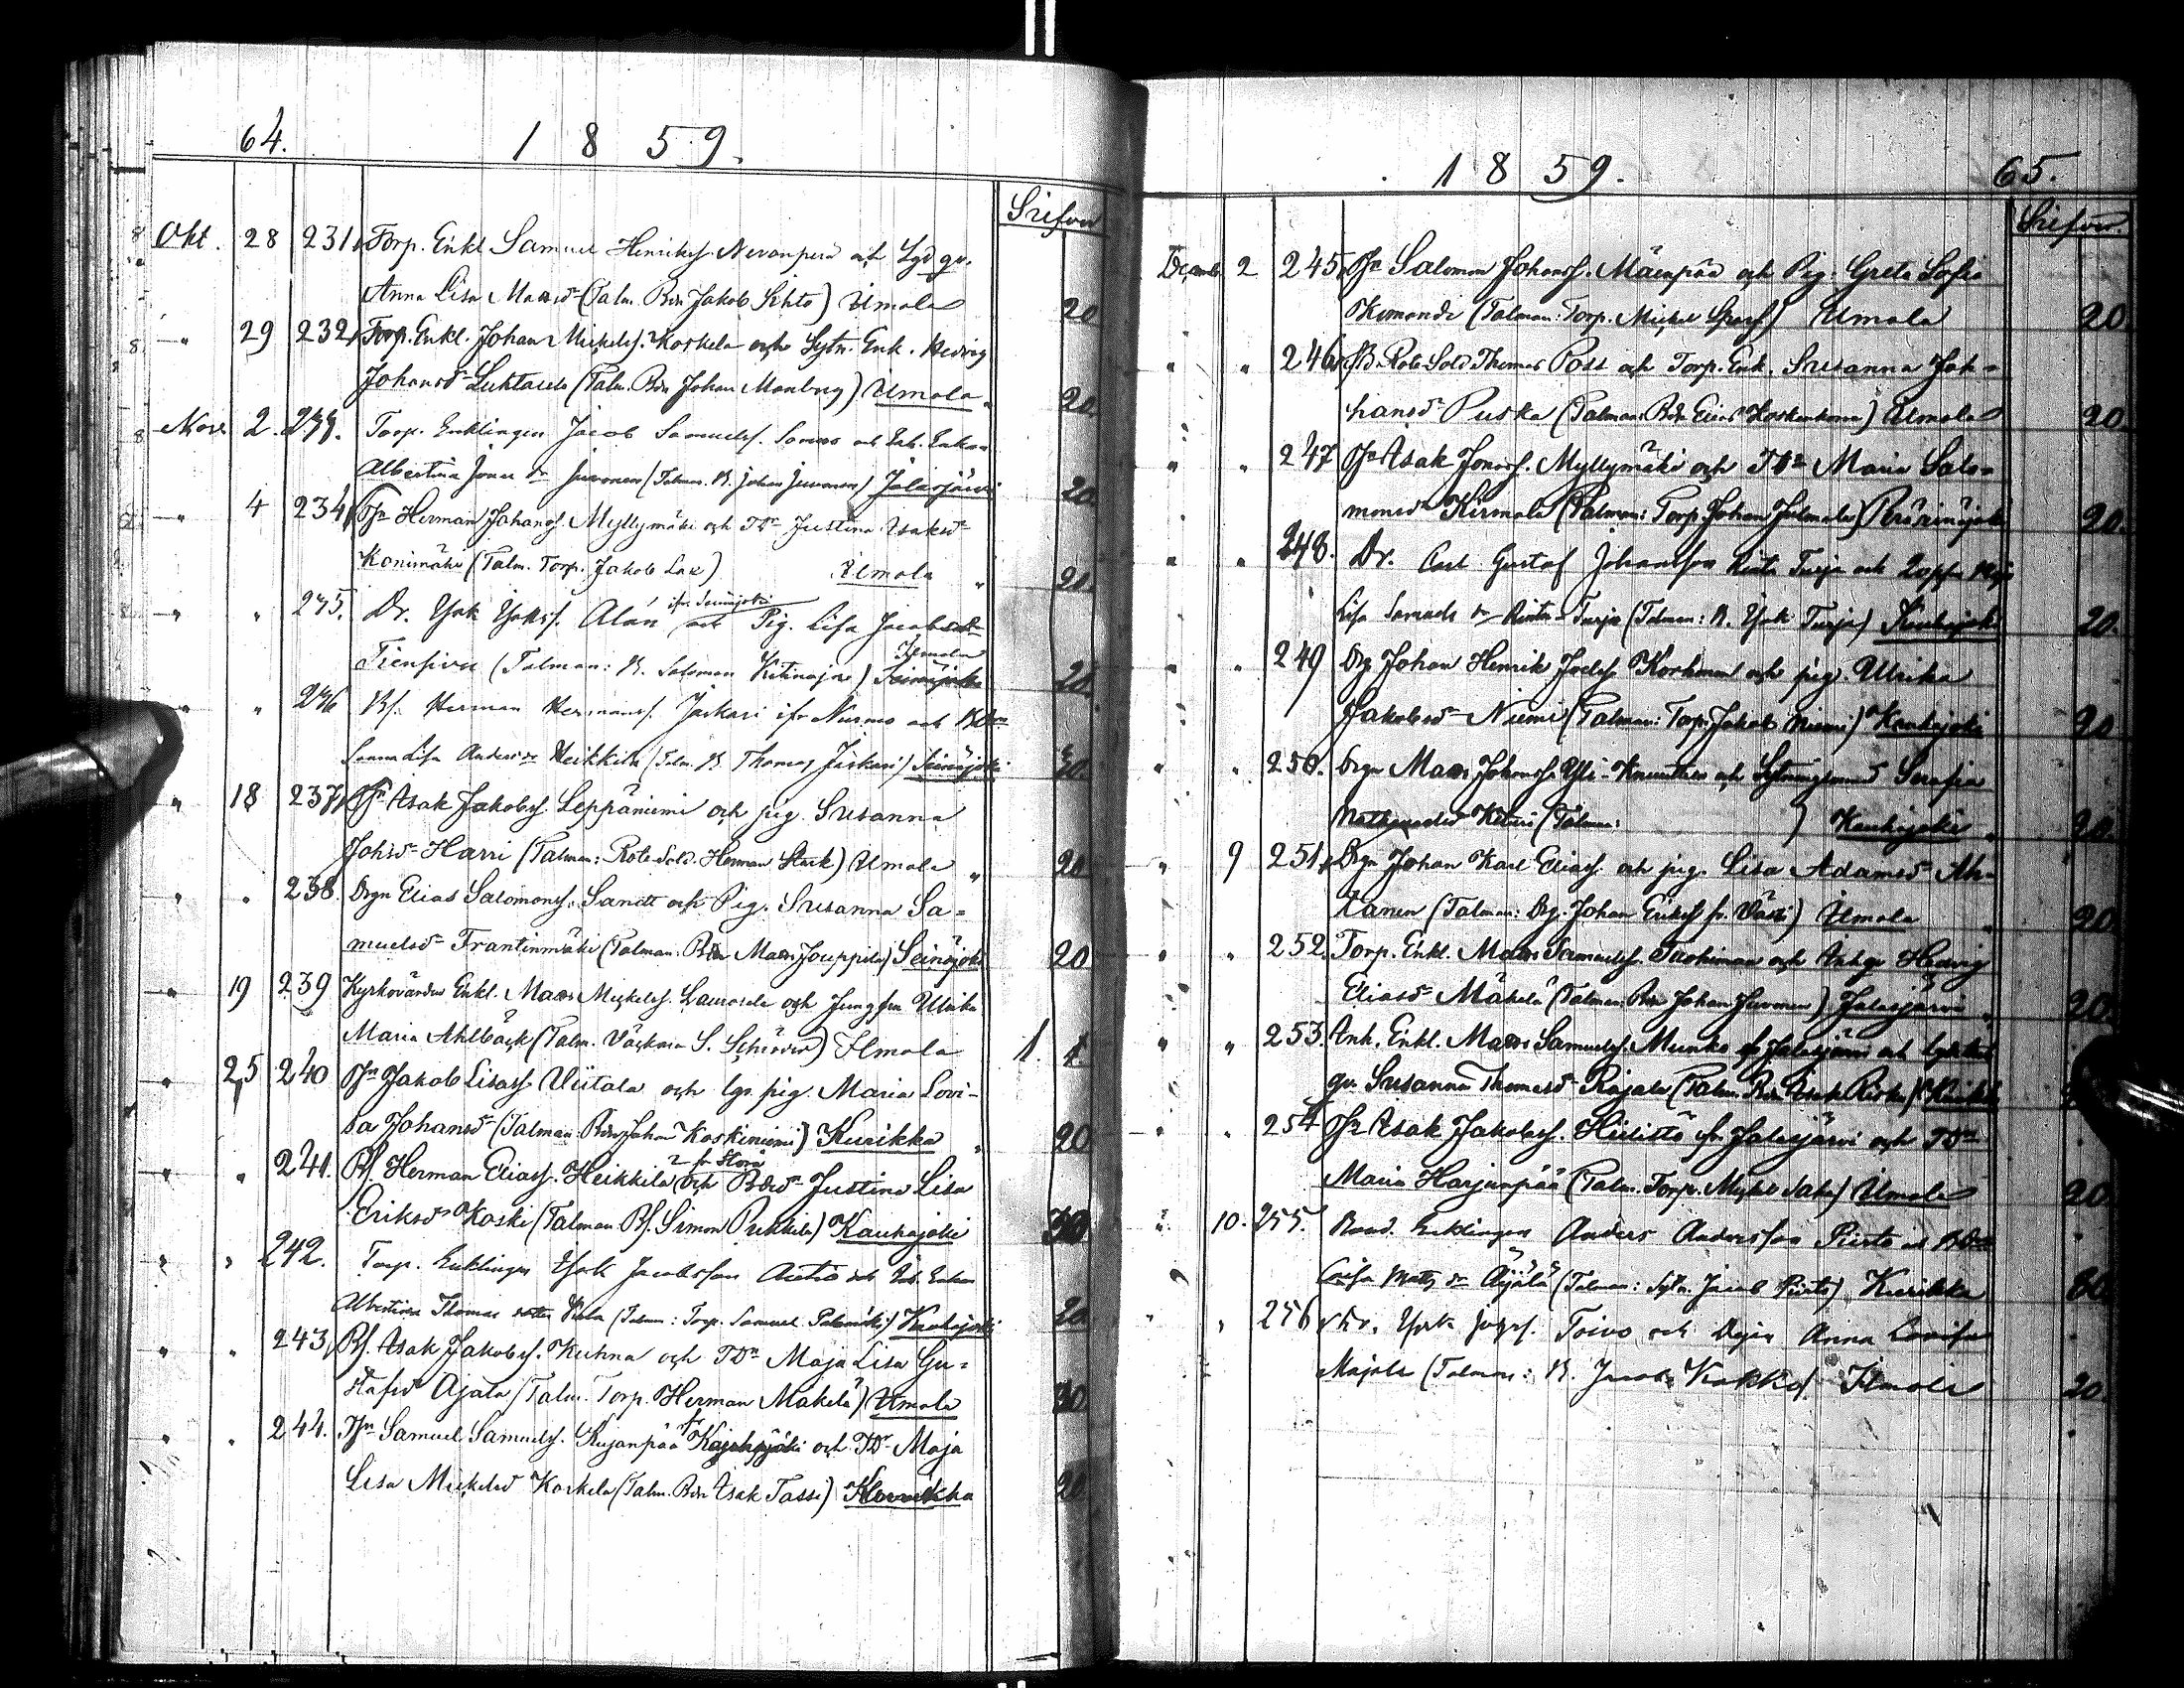 64.
1 8 5 9.
Srefvor
Okt. 28 231. Torp. Enkl. Samuel Henrikss. Nevanperä och Lgdqv.
Anna Lisa Matsdr (Talm. Bdn Jakob Sihto) Ilmola 20
" 29 232. Torp. Enkl. Johan Mickelss. Koskela och Sytn. Enk. Hedvig
Johansdr Luhtasela (Talm. Bdn Johan Manberg) Ilmola 20
Nov. 2. 233. Torp. Enklingen Jacob Samuelss. och Enkan
Albertina Jonae dr Juvonen (Talman. B. Johan Juvonen) Jalasjärvi 20
" 4 234. Tsn Herman Johanss. Myllymäki och TDr Justina Isaksdr
Konimäki (Talm. Torp. Jakob Lax) Ilmola 20
" " 235. Dr. Isak Isakss. Alán ifr. Seinäjoki och Pig. Lisa Jacobsdr
Ilmola
(Talman: B. Salomon Kitinoja) Seinäjoki 20
" " 236 Bs. Herman Hermanss. Jaskari ifr Nurmo och BDr
Sanna Lisa Anders dr Heikkilä (Talm. B. Thomas Jaskari) Seinäjoki 30
" 18 237. Tsn Isak Jakobss. Leppäniemi och pig. Susanna
Johsdr Harri (Talman: Rote Sold. Herman Stark) Ilmola " 20
" " 238. Drgn Elias Salomonss. och Pig. Susanna Sa=
muelsdr Frantinmäki (Talman. Bdn Mats Jouppila) Seinäjoki 20
" 19 239 Kyrkovärden Enkl. Mats Mickelss. Laurosela och Jungfru Ulrika
Maria Ahlbäck (Talm. S. Schröder) Ilmola 1. "
" 25 240 Tsn Jakob Lisass. Viitala och lgs. pig. Maria Lovi-
sa Johansdr (Talman Bdn Johan Koskiniemi) Kurikka " 20
" " 241. Bs. Herman Eliass. Heikkilä och Bdsdr Justina Lisa
Eriksdr Koski (Talman Bs. Simon Pukkila) Kauhajoki 30
" " 242. Torp. Enklingen Isak Jacobsson Autio och Enkan
Albertina Thomas dotter (Talman: Torp. Samuel Palomäki) Kauhajoki 20
" " 243. Bs. Isak Jakobss. Kuhna och TDr Maja Lisa Gu=
stafsdr Ajala (Talm. Torp. Herman Mäkelä) Ilmola 30
" " 244. Tsn Samuel Samuelss. Kujanpää fr Kauhajoki och TDr Maja
Lisa Mickelsdr Koskela (Talm. Bdn Isak Tassi) Kurikka 20
1 8 59.
65.
Srefvor.
Decemb. 2 245. Tsn Salomon Johanss. Mäenpää och Pig. Greta Sofia
(Talman: Torp. Mickel) Ilmola 20.
" " 246. Rote Sold Thomas Post och Torp. Enk. Susanna Jo-
hansdr Puska (Talman Bdn Elias Koskenkorva) Ilmola 20
" " 247 Tsn Isak Jonass. Myllymäki och TDr Maria Salo=
monsdr Kirmola (Talman: Torp Johan) Peräseinäjoki 20.
" " 248. Dr. Carl Gustaf Johansson Rinta Turja och
Lisa dr Rinta-Turja (Talman: B. Isak Turja) Kauhajoki 20.
" " 249 Drg Johan Henrik Joelss. Korhonen och pig. Ulrika
Jakobsdr Niemi (Talman: Torp. Jakob Niemi) Kauhajoki 20
" " 250. Drgn Mats Johanss. Yli- och Serafia
(Talman: ) Kauhajoki " 20.
" 9 251. Drgn Johan Karl Eliass. och pig. Lisa Adamsdr Ah-
tanen (Talman: Drg. Johan Erikss.) Ilmola " 20
" " 252. Torp. Enkl. Mats Samuelss. och Hedvig
Eliasdr Mäkelä (Talman: Bdn Johan Juvonen) Jalasjärvi " 20.
" " 253. Inh. Enkl. Mats Samuelss. Munko fr Jalasjärvi och
qv. Susanna Thomasdr Rajala (Talm. Bdn Isak Riska) Kurikka
" " 254 Tsn Isak Jakobss. Hiilistö ifr Jalasjärvi och TDr
Maria Harjunpää (Talm. Torp. Mickel) Ilmola 20.
" 10. 255. Bond. Enklingen Anders Andersson Piirto och BDr
Caisa Matts dr Äijälä (Talman: Sytn. Jacob Piirto) Kurikka
" " 256 Dr. Isak Toivo och Anna Lovisa
Majala (Talman: B. Jacob Kokko) Ilmola 20.